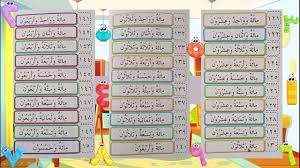 ١٢١ مِائَةٌ وَوَاحِدٌ وَعِشْرُونَ
١٢٢ مِائَةٌ وَاثْنَانِ وَعِشْرُونَ
١٢٣ مِائَةٌ وَثَلَاثَةٌ وَعِشْرُونَ
١٢٤ مِائَةٌ وَأَرْبَعَةٌ وَعِشْرُونَ
١٢٥ مِائَةٌ وَخَمْسَةٌ وَعِشْرُونَ
١٢٦ مِائَةٌ وَسِتَّةٌ وَعِشْرُونَ
١٢٧ مِائَةٌ وَسَبْعَةٌ وَعِشْرُونَ
١٢٨ مِائَةٌ وَثَمَانِيَةٌ وَعِشْرُونَ
١٢٩ مِائَةٌ وَتِسْعَةٌ وَعِشْرُونَ
١٣١ مِائَةٌ وَوَاحِدٌ وَثَلَاثُونَ
١٣٢ مِائَةٌ وَاثْنَانِ وَثَلَاثُونَ
١٣٣ مِائَةٌ وَثَلَاثَةٌ وَثَلَاثُونَ
١٣٤ مِائَةٌ وَأَرْبَعَةٌ وَثَلَاثُونَ
١٣٥ مِائَةٌ وَخَمْسَةٌ وَثَلَاثُونَ
١٣٦ مِائَةٌ وَسِتَّةٌ وَثَلَاثُونَ
١٣٧ مِائَةٌ وَسَبْعَةٌ وَثَلَاثُونَ
١٣٨ مِائَةٌ وَثَمَانِيَةٌ وَثَلَاثُونَ
١٣٩ مِائَةٌ وَتِسْعَةٌ وَثَلَاثُونَ
١٤١ مِائَةٌ وَوَاحِدٌ وَأَرْبَعُونَ
١٤٢ مِائَةٌ وَاثْنَانِ وَأَرْبَعُونَ
١٤٣ مِائَةٌ وَثَلَاثَةٌ وَأَرْبَعُونَ
١٤٤ مِائَةٌ وَأَرْبَعَةٌ وَأَرْبَعُونَ
١٤٥ مِائَةٌ وَخَمْسَةٌ وَأَرْبَعُونَ
١٤٦ مِائَةٌ وَسِتَّةٌ وَأَرْبَعُونَ
١٤٧ مِائَةٌ وَسَبْعَةٌ وَأَرْبَعُونَ
١٤٨ مِائَةٌ وَثَمَانِيَةٌ وَأَرْبَعُونَ
١٤٩ مِائَةٌ وَتِسْعَةٌ وَأَرْبَعُونَ